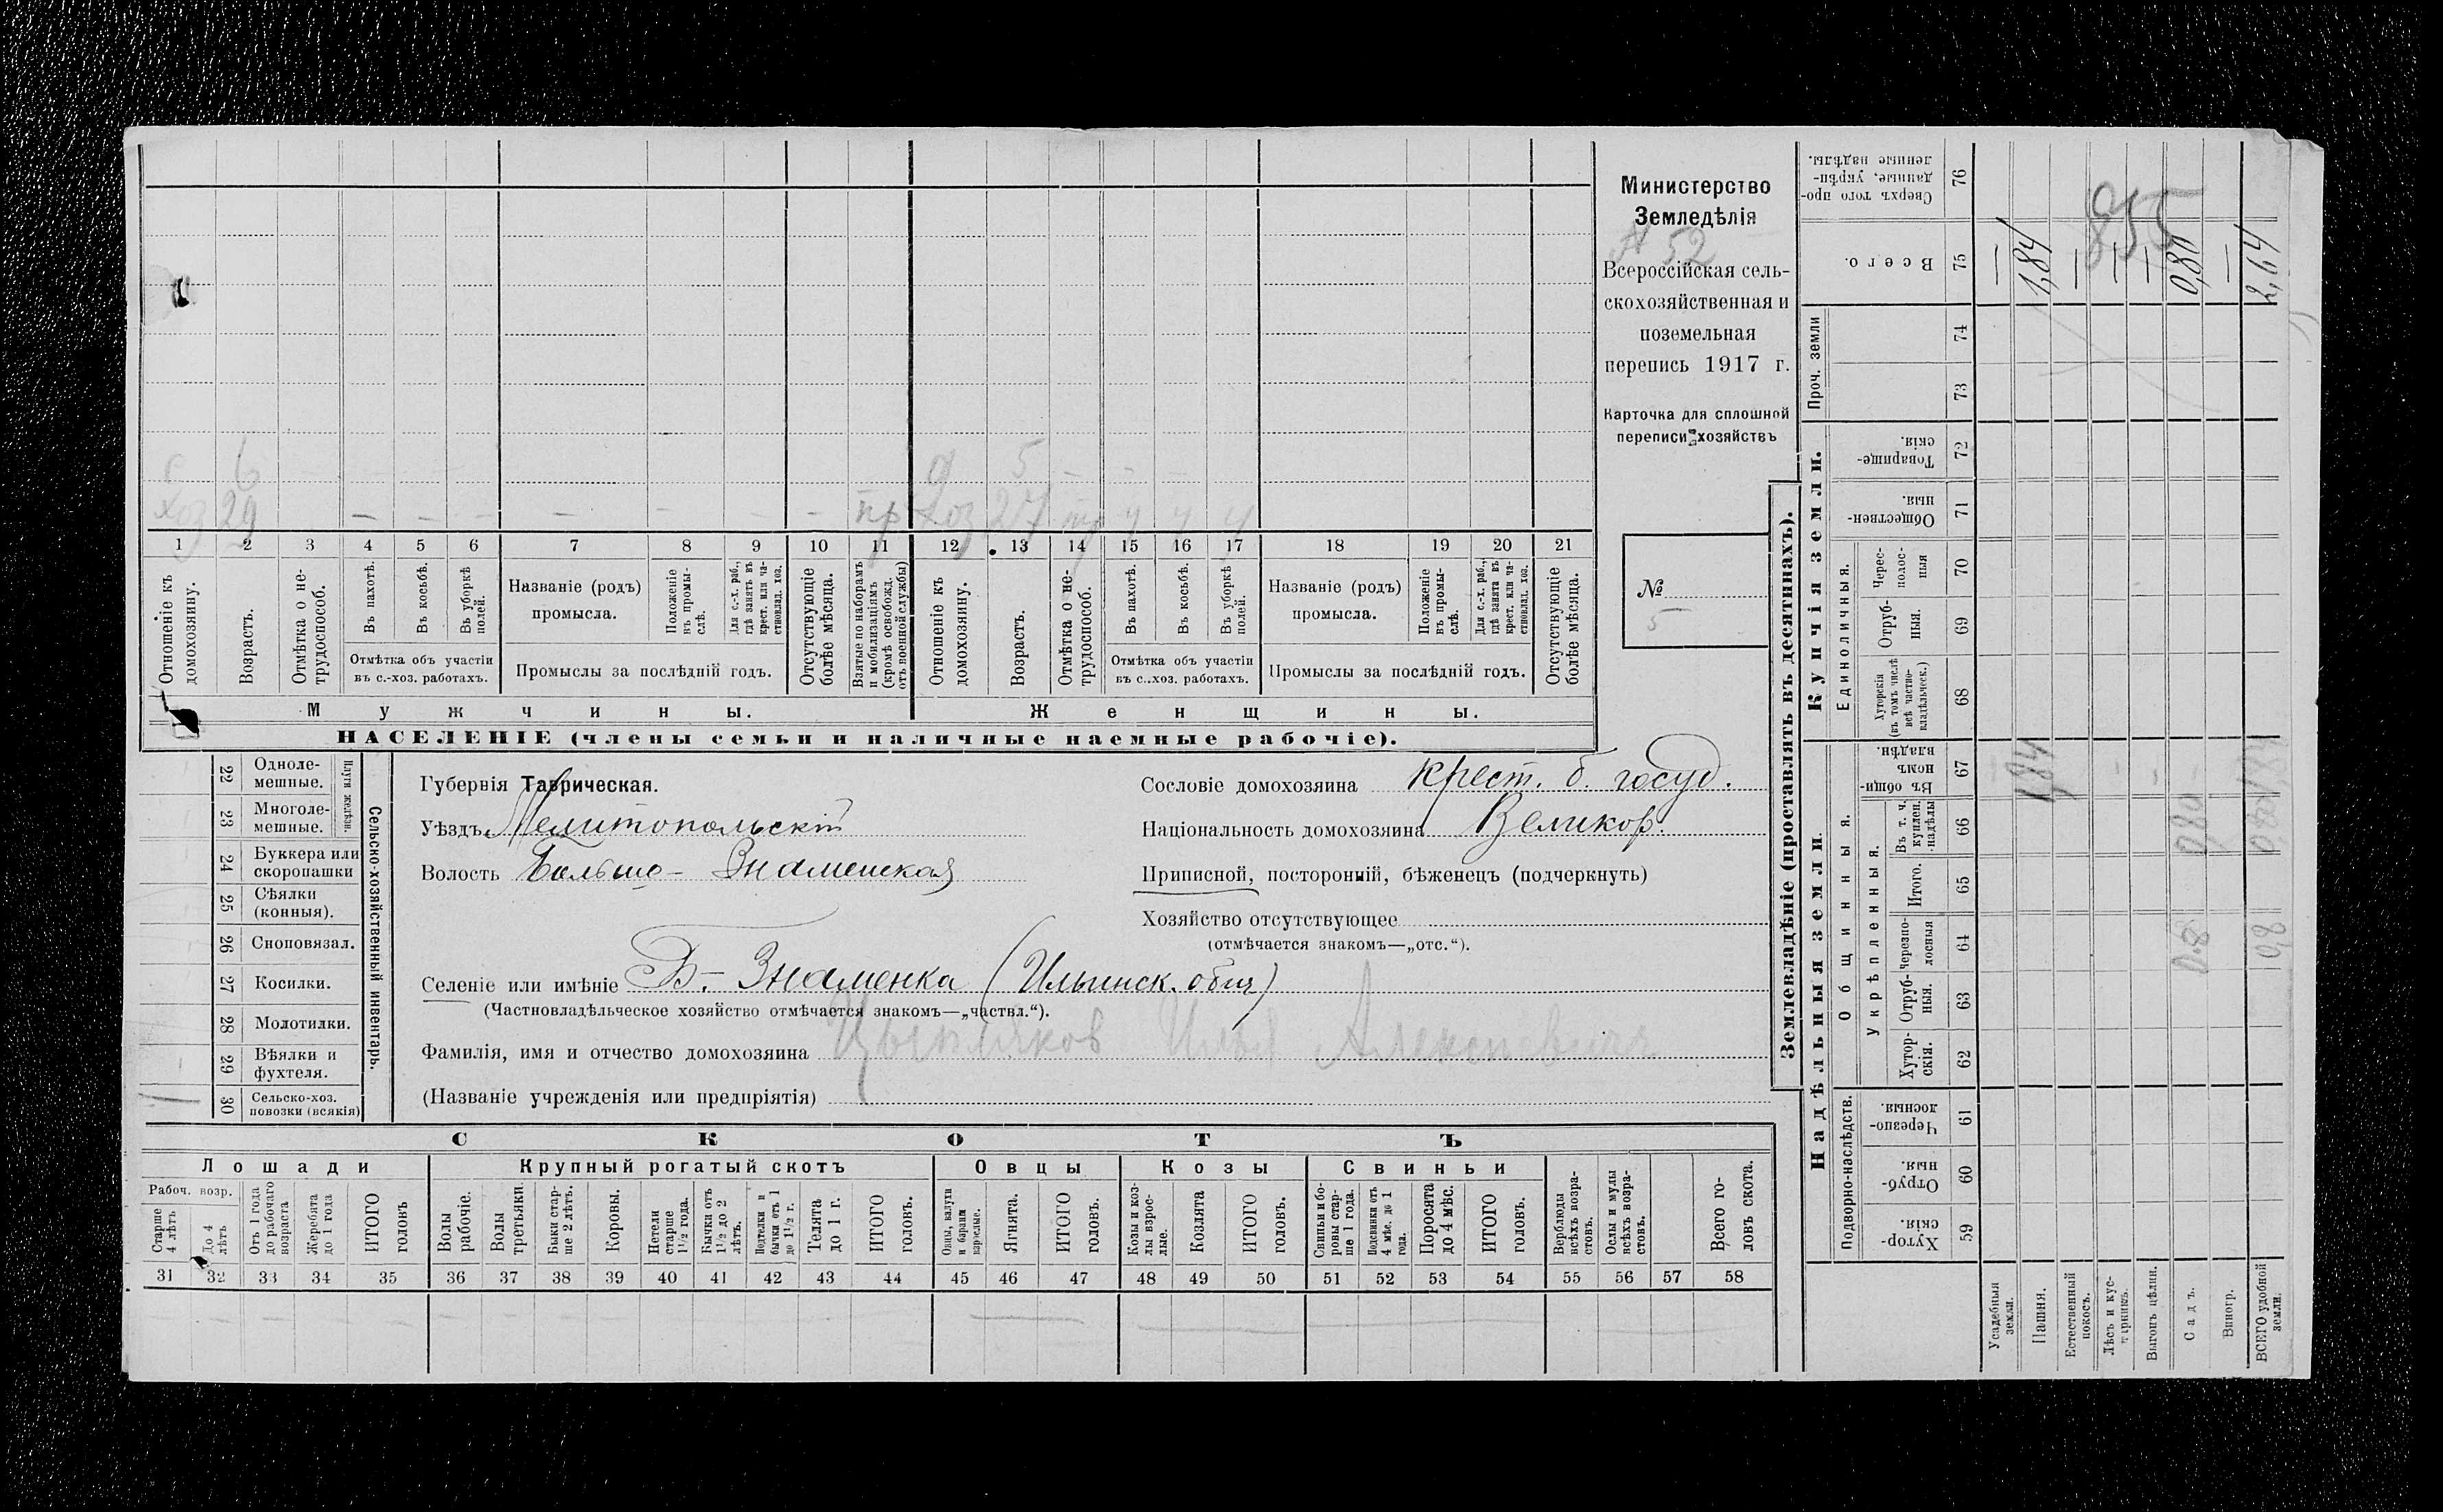 Министерство
Земледѣлія
N 52
Всероссійская сель-
скохозяйственная и
поземельная
перепись 1917 г.
Карточка для сплошной
переписи хозяйствъ
№
5
с 6 д 5
хоз 29 — — — — — — — пр хоз 27 ч ч ч
1 2 3 4 5 6 7 8 9 10 11 12 13 14 15 16 17 18 19 20 21
Отношеніе къ домохозяину.
Возрастъ.
Отмѣтка о не-трудоспособ.
Въ пахотѣ.
Въ косьбѣ.
Въ уборкѣ полей.
Отмѣтка объ участіи
въ с.-хоз. работахъ.
Названіе (родъ)
промысла.
Положеніе въ промы-слѣ.
Для с.-х. раб., гдѣ занятъ въ крест. или ча-стновлад. хоз.
Промыслы за послѣдній годъ.
Отсутствующіе болѣе мѣсяца.
Взятые по наборамъ и мобилизаціямъ (кромѣ освобожд. отъ военной службы)
Отношеніе къ домохозяину.
Возрастъ.
Отмѣтка о не-трудоспособ.
Въ пахотѣ.
Въ косьбѣ.
Въ уборкѣ полей.
Отмѣтка объ участіи
въ с.-хоз. работахъ.
Названіе (родъ)
промысла.
Положеніе въ промы-слѣ.
Для с.-х. раб., гдѣ занята въ крест. или ча-стновлад. хоз.
Промыслы за послѣдній годъ.
Отсутствующіе болѣе мѣсяца.
Мужчины. Женщины.
НАСЕЛЕНІЕ (члены семьи и наличные наемные рабочіе).
Сельско-хозяйственный инвентарь.
Плуги желѣзн.
22 Одноле-мешные.
23 Многоле-мешные.
24 Буккера или скоропашки
25 Сѣялки (конныя).
26 Сноповязал.
27 Косилки.
28 Молотилки.
29 Вѣялки и фухтеля.
30 Сельско-хоз. повозки (всякія)
Губернія Таврическая.
Уѣздъ Мелитопольскій
Волость Больше- Знаменская
Сословіе домохозяина крест. б. госуд.
Національность домохозяина Великор.
Приписной, посторонній, бѣженецъ (подчеркнуть)
Хозяйство отсутствующее
(отмѣчается знакомъ—„отс.“).
Селеніе или имѣніе Б- Знаменка (Ильинск. общ)
(Частновладѣльческое хозяйство отмѣчается знакомъ—„частвл.“).
Фамилія, имя и отчество домохозяина Цыпляков Илья Алексеевич
(Названіе учрежденія или предпріятія)
СКОТЪ
Лошади Крупный рогатый скотъ Овцы Козы Свиньи
Рабоч. возр.
Старше 4 лѣтъ
До 4 лѣтъ
Отъ 1 года до рабочаго возраста
Жеребята до 1 года
ИТОГО головъ
Волы рабочіе.
Волы третьяки.
Быки стар-ше 2 лѣтъ.
Коровы.
Нетели старше 1½ года.
Бычки отъ 1½ до 2 лѣтъ.
Подтелки и бычки отъ 1 до 1½ г.
Телята до 1 г.
ИТОГО головъ.
Овцы, валухи и бараны взрослые.
Ягнята.
ИТОГО головъ.
Козы и коз-лы взрос-лые.
Козлята
ИТОГО головъ.
Свиньи и бо-ровы стар-ше 1 года.
Подсвинки отъ 4 мѣс. до 1 года.
Поросята до 4 мѣс.
ИТОГО головъ.
Верблюды всѣхъ возра-стовъ.
Ослы и мулы всѣхъ возра-стовъ.
Всего го-ловъ скота.
31 32 33 34 35 36 37 38 39 40 41 42 43 44 45 46 47 48 49 50 51 52 53 54 55 56 57 58
Землевладѣніе (проставлять въ десятинахъ).
Надѣльныя земли. Купчія земли. Проч. земли
Подворно-наслѣдств.
Общинныя.
Укрѣпленныя.
Единоличныя.
Хутор-скія. 59
Отруб-ныя. 60
Черезпо-лосныя. 61
Хутор-скія. 62
Отруб-ныя. 63
Черезпо-лосныя 64
Итого. 65
Въ т. ч. куплен. надѣлы 66
Въ общин-номъ владѣн. 67
Хуторскія (въ томъ числѣ всѣ частно-владѣльческ.) 68
Отруб-ныя. 69
Черес-полос-ныя 70
Обществен-ныя. 71
Товарище-скія. 72
73
74
Всего. 75
Сверхъ того про-данные, укрѣп-ленные надѣлы. 76
Усадебныя земли. —
Пашня. 1,84 1,84
Естественный покосъ. —
Лѣсъ и кус-тарникъ. —
Выгонъ цѣлин. —
Садъ. 0,8 0,80 0,80
Виногр. —
ВСЕГО удобной земли. 0,8 2,64
855